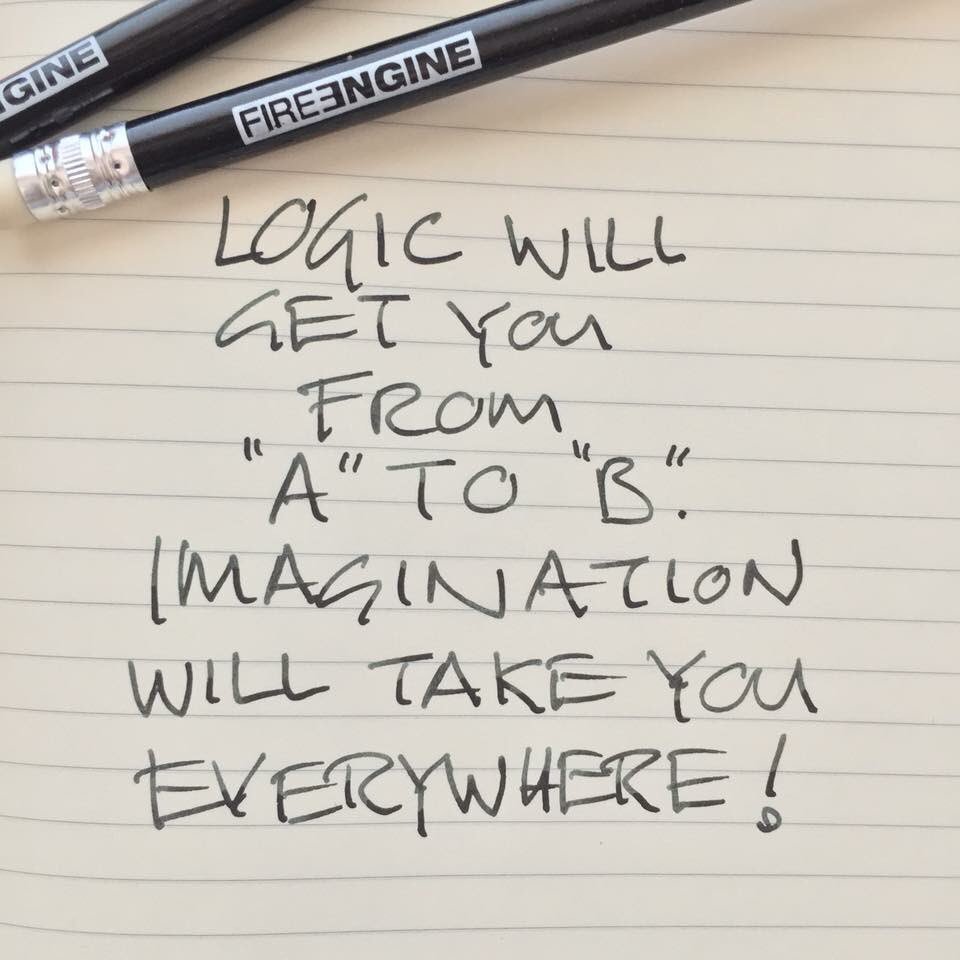 GINE
FIREENGINE
LOGIC WILL
GET YOU
FROM
"A" TO "B".
IMAGINATION
WILL TAKE YOU
EVERYWHERE!